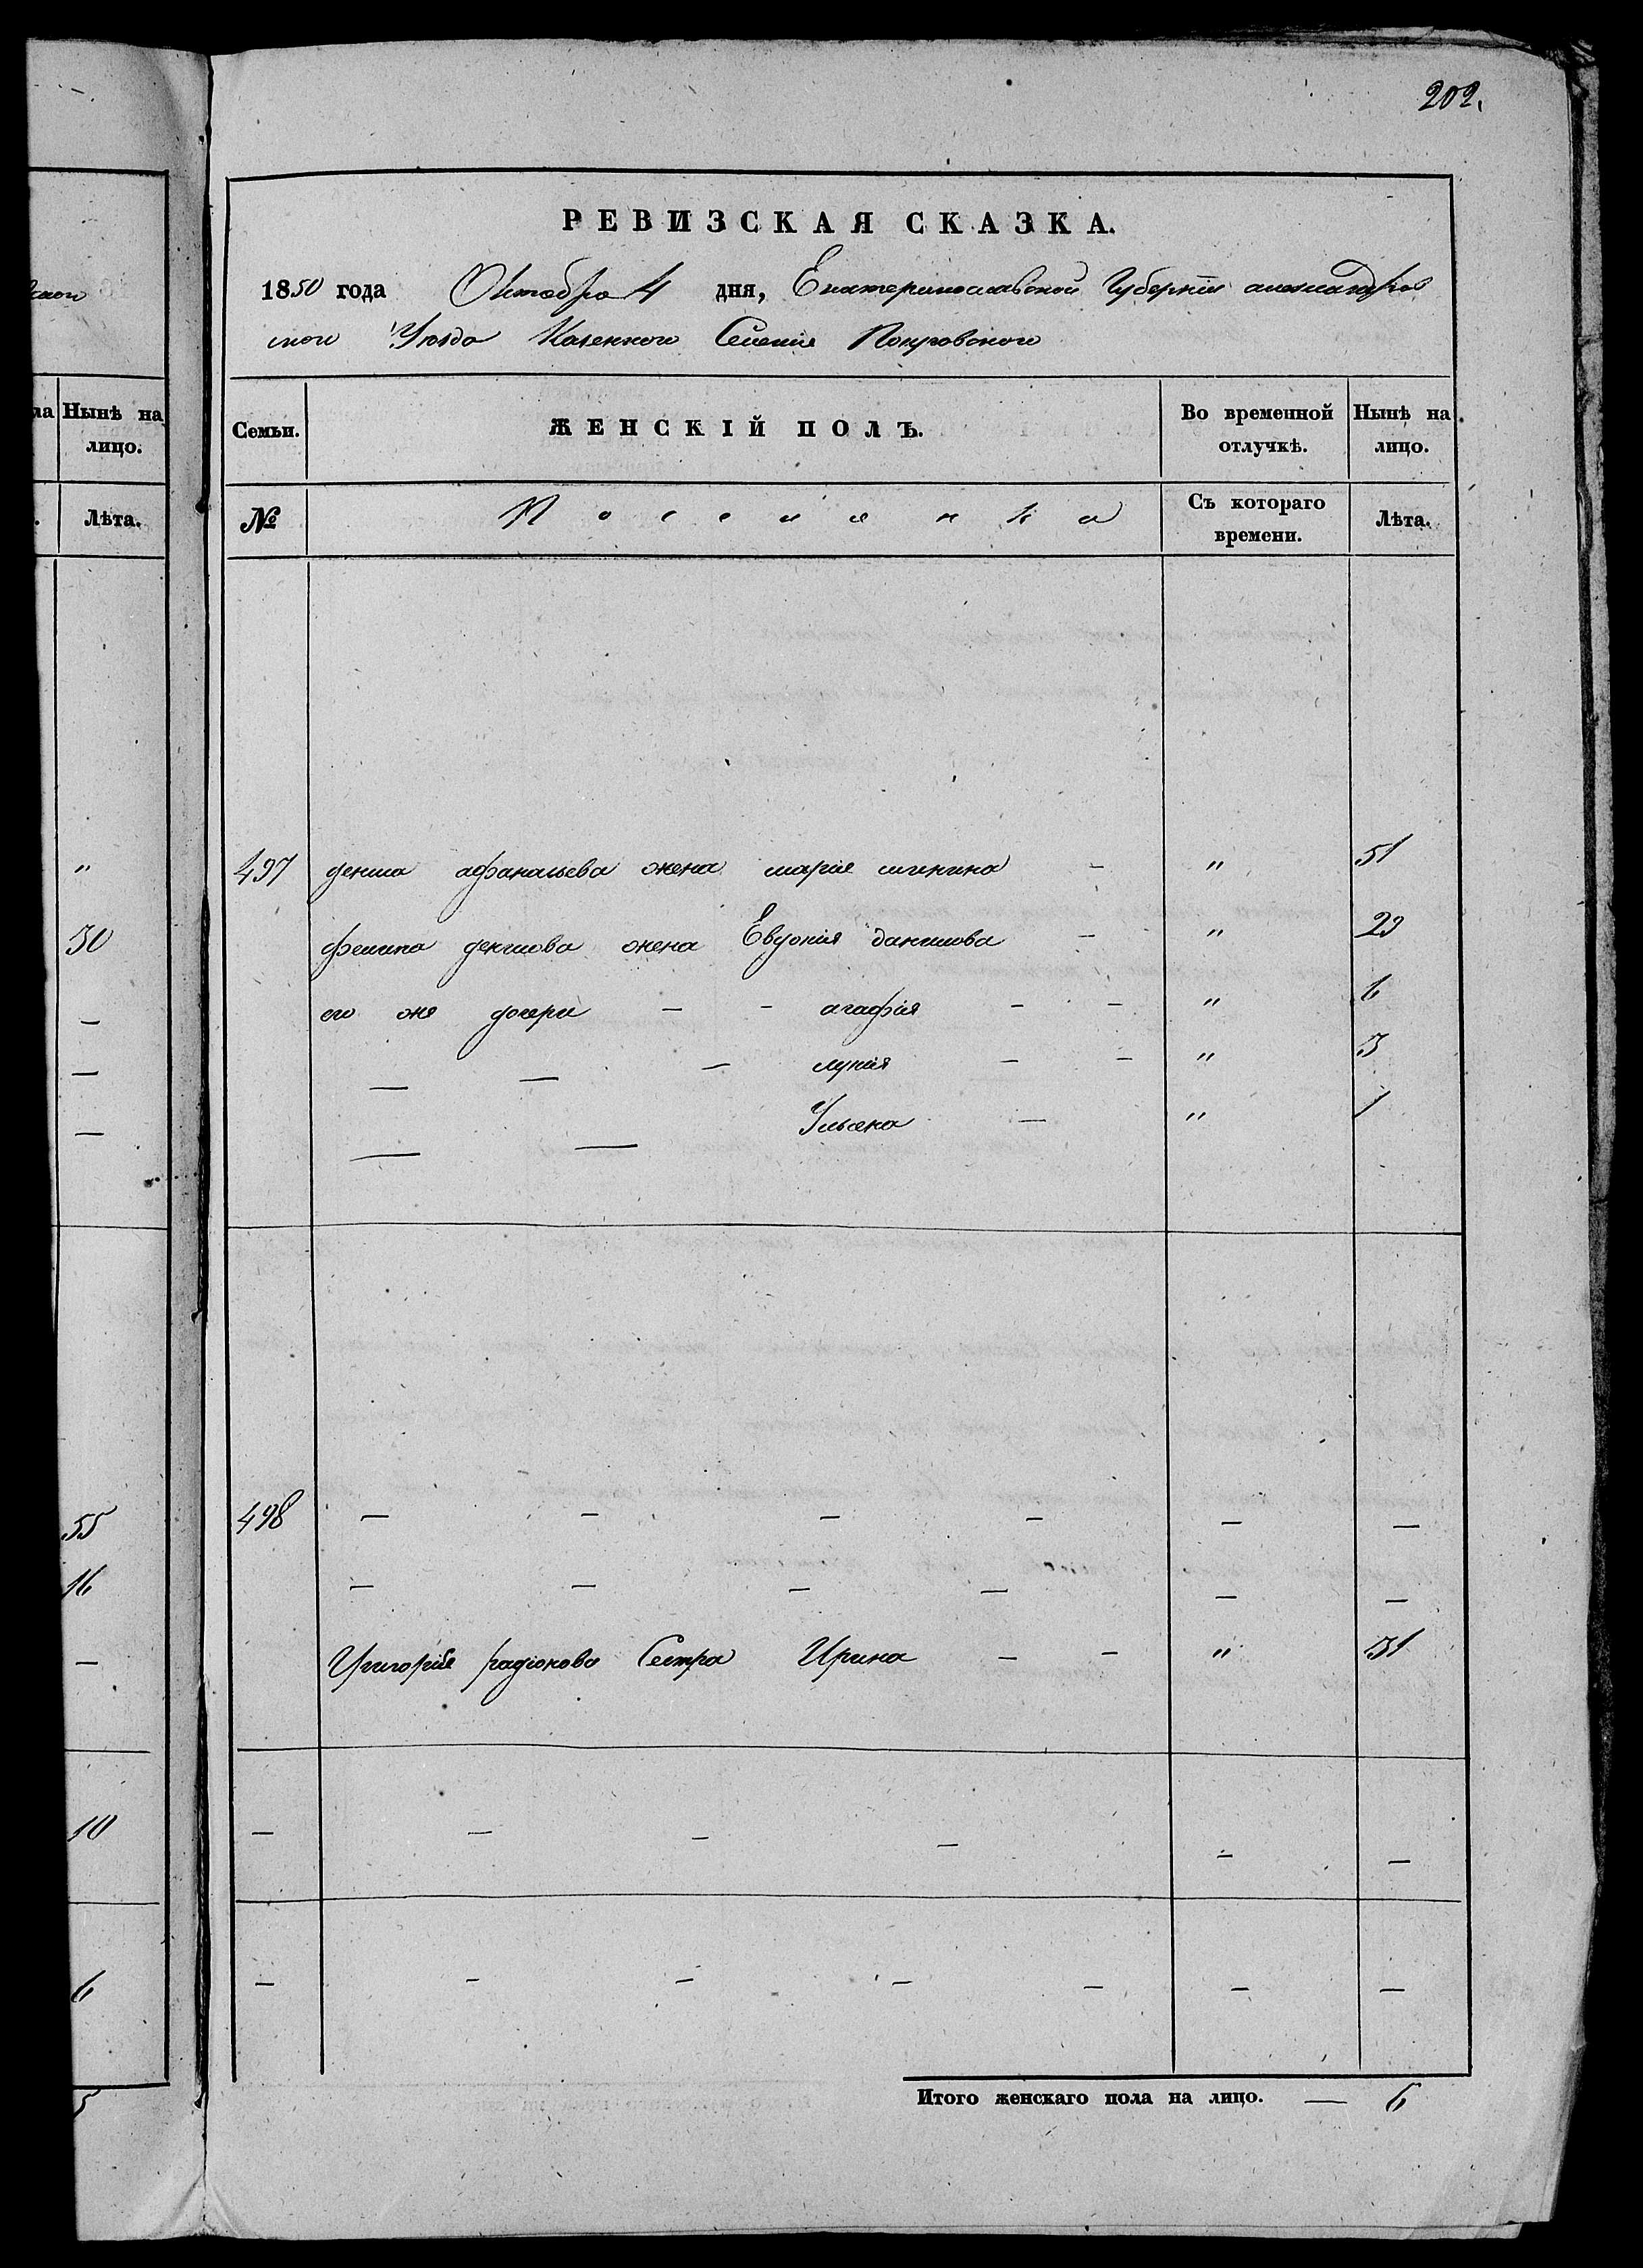 202.
РЕВИЗСКАЯ СКАЗКА.
1850 года Октября 4 дня, Екатеринославской Губерніи александров
ской Уезда Казенного Селенія Покровского
ла Нынѣ на лицо.
Лѣта.
Семьи. ЖЕНСКІЙ ПОЛЪ. Во временной отлучкѣ. Нынѣ на лицо.
№ Поселянка Съ котораго времени. Лѣта.
" 497 афанасьева жена марія " 51
30 жена Евдокія данилова " 29
— его же дочери — — агафія — — " 6
— — — — лукія — — " 3
— — — Ульяна — " 1
55 498 — — — — — —
16 — — — — — —
— Григорія радіонова Сестра Ирина — — " 31
10 — — — — — —
6 — — — — — — —
5 Итого женскаго пола на лицо. — 6